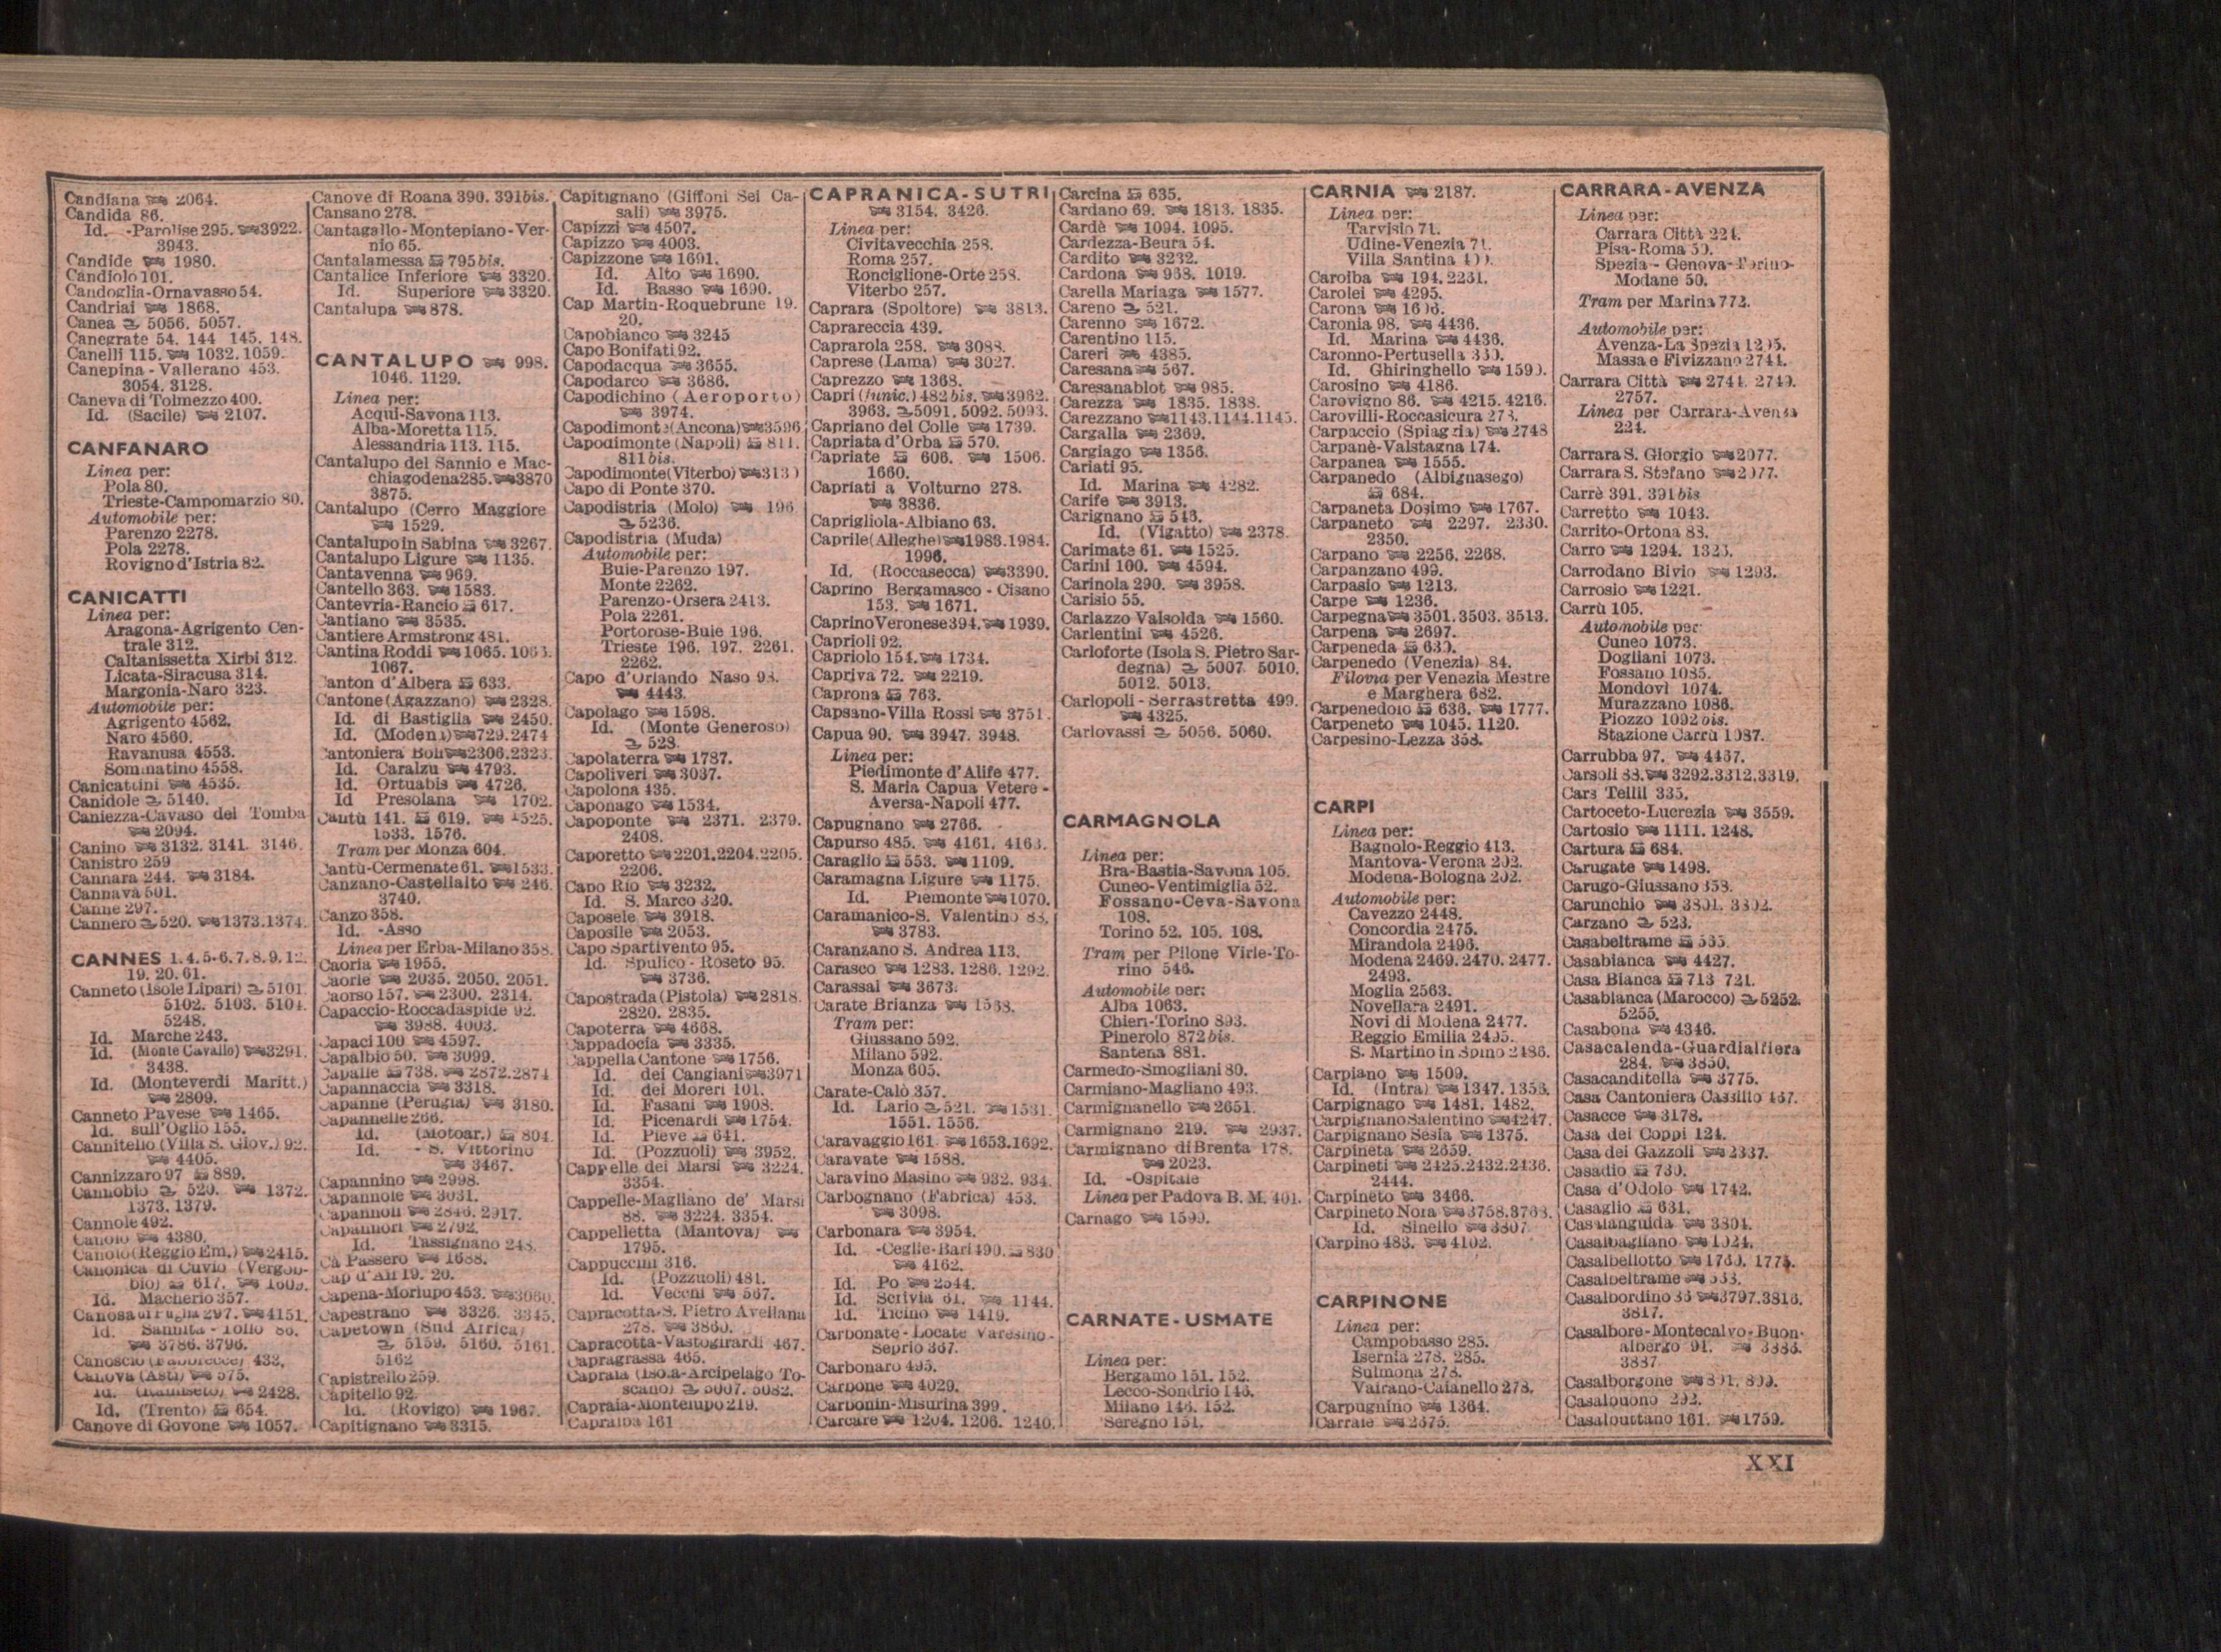 Candiana 2064.
Candida 86.
Id. -Parolise 295. 3922.
3943.
Candide 1980.
Candiolo 101.
Candoglia-Ornavasso 54.
Candriai 1868.
Canea 5056. 5057.
Canegrate 54. 144 145. 148.
Canelli 115. 1032. 1059.
Canepina - Vallerano 453.
3054. 3128.
Caneva di Tolmezzo 400.
Id. (Sacile) 2107.
CANFANARO
Linea per:
Pola 80.
Trieste-Campomarzio 80.
Automobile per:
Parenzo 2278.
Pola 2278.
Rovigno d'Istria 82.
CANICATTI
Linea per:
Aragona-Agrigento Cen-
trale 312.
Caltanissetta Xirbi 312.
Licata-Siracusa 314.
Margonia-Naro 323.
Automobile per:
Agrigento 4562.
Naro 4560.
Ravanusa 4553.
Sommatino 4558.
Canicattini 4535.
Canidole 5140.
Caniezza-Cavaso del Tomba
2094.
Canino 3132. 3141. 3146.
Canistro 259
Cannara 244. 3184.
Cannava 501.
Canne 297.
Cannero 520. 1373.1374.
CANNES 1.4.5-6.7.8.9.12.
19. 20. 61.
Canneto (Isole Lipari) 5101.
5102. 5103. 5104.
5248.
Id. Marche 243.
Id. (Monte Cavallo) 3291.
3438.
Id. (Monteverdi Maritt.)
2809.
Canneto Pavese 1465.
Id. sull'Oglio 155.
Cannitello (Villa S. Giov.) 92.
4405.
Cannizzaro 97 889.
Cannobio 520. 1372.
1373. 1379.
Cannole 492.
Canolo 4380.
Canolo (Reggio Em.) 2415.
Canonica di Cuvio (Vergob-
bio) 617.
Id. Macherio 357.
Canosa di Puglia 297. 4151.
Id. Sannita - Tollo 86.
3786. 3796.
Canoscio 433.
Canova (Asti) 575.
Id. 2428.
Id. (Trento) 654.
Canove di Govone 1057.
Canove di Roana 390. 391bis.
Cansano 278.
Cantagallo-Montepiano-Ver-
nio 65.
Cantalamessa 795bis.
Cantalice Inferiore 3320.
Id. Superiore 3320.
Cantalupa 878.
CANTALUPO 998.
1046. 1129.
Linea per:
Acqui-Savona 113.
Alba-Moretta 115.
Alessandria 113. 115.
Cantalupo del Sannio e Mac-
chiagodena 285. 3870
3875.
Cantalupo (Cerro Maggiore
1529.
Cantalupo in Sabina 3267.
Cantalupo Ligure 1135.
Cantavenna 969.
Cantello 363. 1583.
Cantevria-Rancio 617.
Cantiano 3535.
Cantiere Armstrong 481.
Cantina Roddi 1065. 1063.
1067.
Canton d'Albera 633.
Cantone (Agazzano) 2328.
Id. di Bastiglia 2450.
Id. (Modena) 729.2474
Cantoniera Boli 2306.2323.
Id. Caralzu 4793.
Id. Ortuabis 4726.
Id Presolana 1702.
Cantù 141. 619. 1525.
1533. 1576.
Tram per Monza 604.
Cantù-Cermenate 61. 1533.
Canzano-Castellalto 246.
3740.
Canzo 358.
Id. -Asso
Linea per Erba-Milano 358.
Caoria 1955.
Caorle 2035. 2050. 2051.
Caorso 157. 2300. 2314.
Capaccio-Roccadaspide 92.
3988. 4003.
Capaci 100 4597.
Capalbio 50. 3099.
Capalle 738. 2872.2874
Capannaccia 3318.
Capanne (Perugia) 3180.
Capannelle 266.
Id. (Motoar.) 804.
Id. - S. Vittorino
3467.
Capannino 2998.
Capannole 3031.
Capannoli 2846. 2917.
Capannori 2792.
Id. Tassignano 248.
Cà Passero 1688.
Cap d'Ail 19. 20.
Capena-Morlupo 453. 3060.
Capestrano 3326. 3345.
Capetown (Sud Africa)
5159. 5160. 5161.
5162
Capistrello 259.
Capitello 92.
Id. (Rovigo) 1967.
Capitignano 3315.
Capitignano (Giffoni Sei Ca-
sali) 3975.
Capizzi 4507.
Capizzo 4003.
Capizzone 1691.
Id. Alto 1690.
Id. Basso 1690.
Cap Martin-Roquebrune 19.
20.
Capobianco 3245
Capo Bonifati 92.
Capodacqua 3655.
Capodarco 3686.
Capodichino (Aeroporto)
3974.
Capodimonte (Ancona) 3596
Capodimonte (Napoli) 811.
811bis.
Capodimonte (Viterbo)
Capo di Ponte 370.
Capodistria (Molo) 196
5236.
Capodistria (Muda)
Automobile per:
Buie-Parenzo 197.
Monte 2262.
Parenzo-Orsera 2413.
Pola 2261.
Portorose-Buie 196.
Trieste 196. 197. 2261.
2262.
Capo d'Orlando Naso 98.
4443.
Capolago 1598.
Id. (Monte Generoso)
523.
Capolaterra 1787.
Capoliveri 3037.
Capolona 435.
Caponago 1534.
Capoponte 2371. 2379.
2408.
Caporetto 2201.2204.2205.
2206.
Capo Rio 3232.
Id. S. Marco 320.
Caposele 3918.
Caposile 2053.
Capo Spartivento 95.
Id. Spulico - Roseto 95.
3736.
Capostrada (Pistoia) 2818.
2820. 2835.
Capoterra 4668.
Cappadocia 3335.
Cappella Cantone 1756.
Id. dei Cangiani 3971
Id. dei Moreri 101.
Id. Fasani 1908.
Id. Picenardi 1754.
Id. Pieve 641.
Id. (Pozzuoli) 3952.
Cappelle dei Marsi 3224.
3354.
Cappelle-Magliano de' Marsi
88. 3224. 3354.
Cappelletta (Mantova)
1795.
Cappuccini 316.
Id. (Pozzuoli) 481.
Id. Vecchi 567.
Capracotta-S. Pietro Avellana
278. 3860.
Capracotta-Vastogirardi 467.
Capragrassa 465.
Capraia (Isola-Arcipelago To-
scano) 5007. 5082.
Capraia-Montelupo 219.
Capralba 161
CAPRANICA-SUTRI
3154. 3426.
Linea per:
Civitavecchia 258.
Roma 257.
Ronciglione-Orte 258.
Viterbo 257.
Caprara (Spoltore) 3813.
Caprareccia 439.
Caprarola 258. 3088.
Caprese (Lama) 3027.
Caprezzo 1368.
Capri (funic.) 482bis. 3962.
3963. 5091. 5092. 5093.
Capriano del Colle 1739.
Capriata d'Orba 570.
Capriate 606. 1506.
1660.
Capriati a Volturno 278.
3836.
Caprigliola-Albiano 63.
Caprile (Alleghe) 1983.1984.
1996.
Id. (Roccasecca) 3390.
Caprino Bergamasco - Cisano
153. 1671.
Caprino Veronese 394. 1939.
Caprioli 92.
Capriolo 154. 1734.
Capriva 72. 2219.
Caprona 763.
Capsano-Villa Rossi 3751.
Capua 90. 3947. 3948.
Linea per:
Piedimonte d'Alife 477.
S. Maria Capua Vetere -
Aversa-Napoli 477.
Capugnano 2766.
Capurso 485. 4161. 4163.
Caraglio 553. 1109.
Caramagna Ligure 1175.
Id. Piemonte 1070.
Caramanico-S. Valentino 88.
3783.
Caranzano S. Andrea 113.
Carasco 1283. 1286. 1292.
Carassai 3673.
Carate Brianza 1568.
Tram per:
Giussano 592.
Milano 592.
Monza 605.
Carate-Calò 357.
Id. Lario 521. 1531.
1551. 1556.
Caravaggio 161. 1653.1692.
Caravate 1588.
Caravino Masino 932. 934.
Carbognano (Fabrica) 453.
3098.
Carbonara 3954.
Id. -Ceglie-Bari 490. 830
4162.
Id. Po 2544.
Id. Scrivia 61. 1144.
Id. Ticino 1419.
Carbonate - Locate Varesino -
Seprio 367.
Carbonaro 495.
Carbone 4029.
Carbonin-Misurina 399.
Carcare 1204. 1206. 1240.
Carcina 635.
Cardano 69. 1813. 1835.
Cardè 1094. 1095.
Cardezza-Beura 54.
Cardito 3232.
Cardona 968. 1019.
Carella Mariaga 1577.
Careno 521.
Carenno 1672.
Carentino 115.
Careri 4385.
Caresana 567.
Caresanablot 985.
Carezza 1835. 1838.
Carezzano 1143.1144.1145.
Cargalla 2369.
Cargiago 1356.
Cariati 95.
Id. Marina 4282.
Carife 3913.
Carignano 546.
Id. (Vigatto) 2378.
Carimate 61. 1525.
Carini 100. 4594.
Carinola 290. 3958.
Carisio 55.
Carlazzo Valsolda 1560.
Carlentini 4526.
Carloforte (Isola S. Pietro Sar-
degna) 5007. 5010.
5012. 5013.
Carlopoli - Serrastretta 499.
4325.
Carlovassi 5056. 5060.
CARMAGNOLA
Linea per:
Bra-Bastia-Savona 105.
Cuneo-Ventimiglia 52.
Fossano-Ceva-Savona
108.
Torino 52. 105. 108.
Tram per Pilone Virle-To-
rino 546.
Automobile per:
Alba 1063.
Chieri-Torino 893.
Pinerolo 872bis.
Santena 881.
Carmedo-Smogliani 80.
Carmiano-Magliano 493.
Carmignanello 2651.
Carmignano 219. 2937.
Carmignano di Brenta 178.
2023.
Id. -Ospitale
Linea per Padova B. M. 401.
Carnago 1599.
CARNATE-USMATE
Linea per:
Bergamo 151. 152.
Lecco-Sondrio 146.
Milano 146. 152.
Seregno 151.
CARNIA 2187.
Linea per:
Tarvisio 71.
Udine-Venezia 71.
Villa Santina 400.
Caroiba 194. 2231.
Carolei 4295.
Carona 1696.
Caronia 98. 4436.
Id. Marina 4436.
Caronno-Pertusella 360.
Id. Ghiringhello 1590.
Carosino 4186.
Carovigno 86. 4215. 4216.
Carovilli-Roccasicura 278.
Carpaccio (Spiaggia) 2748
Carpanè-Valstagna 174.
Carpanea 1555.
Carpanedo (Albignasego)
684.
Carpaneta Dosimo 1767.
Carpaneto 2297. 2330.
2350.
Carpano 2256. 2268.
Carpanzano 499.
Carpasio 1213.
Carpe 1236.
Carpegna 3501.3503. 3513.
Carpena 2697.
Carpeneda 630.
Carpenedo (Venezia) 84.
Filovia per Venezia Mestre
e Marghera 682.
Carpenedolo 636. 1777.
Carpeneto 1045. 1120.
Carpesino-Lezza 358.
CARPI
Linea per:
Bagnolo-Reggio 413.
Mantova-Verona 202.
Modena-Bologna 202.
Automobile per:
Cavezzo 2448.
Concordia 2475.
Mirandola 2496.
Modena 2469. 2470. 2477.
2493.
Moglia 2563.
Novellara 2491.
Novi di Modena 2477.
Reggio Emilia 2495.
S. Martino in Spino 2486.
Carpiano 1509.
Id. (Intra) 1347. 1358.
Carpignago 1481. 1482.
Carpignano Salentino 4247.
Carpignano Sesia 1375.
Carpineta 2659.
Carpineti 2425.2432.2436.
2444.
Carpineto 3466.
Carpineto Nora 3758.3768.
Id. Sinello 3807
Carpino 483. 4102.
CARPINONE
Linea per:
Campobasso 285.
Isernia 278. 285.
Sulmona 278.
Vairano-Caianello 278.
Carpugnino 1364.
Carraie 2675.
CARRARA-AVENZA
Linea per:
Carrara Città 224.
Pisa-Roma 50.
Spezia - Genova-Torino-
Modane 50.
Tram per Marina 772.
Automobile per:
Avenza-La Spezia 1295.
Massa e Fivizzano 2741.
Carrara Città 2741. 2749.
2757.
Linea per Carrara-Avenza
224.
Carrara S. Giorgio 2077.
Carrara S. Stefano 2077.
Carrè 391. 391bis
Carretto 1043.
Carrito-Ortona 88.
Carro 1294. 1323.
Carrodano Bivio 1293.
Carrosio 1221.
Carrù 105.
Automobile per
Cuneo 1073.
Dogliani 1073.
Fossano 1085.
Mondovì 1074.
Murazzano 1086.
Piozzo 1092bis.
Stazione Carrù 1087.
Carrubba 97. 4467.
Carsoli 88. 3292.3312.3319.
Cars Tellil 335.
Cartoceto-Lucrezia 3559.
Cartosio 1111. 1248.
Cartura 684.
Carugate 1498.
Carugo-Giussano 358.
Carunchio 3801. 3802.
Carzano 523.
Casabeltrame 535.
Casabianca 4427.
Casa Bianca 713 721.
Casablanca (Marocco) 5252.
5255.
Casabona 4346.
Casacalenda-Guardialfiera
284. 3850.
Casacanditella 3775.
Casa Cantoniera Cassillo 467.
Casacce 3178.
Casa dei Coppi 124.
Casa dei Gazzoli 2337.
Casadio 730.
Casa d'Odolo 1742.
Casaglio 631.
Casalanguida 3804.
Casalbagliano 1024.
Casalbellotto 1760. 1775.
Casalbeltrame 533.
Casalbordino 86 3797.3816.
3817.
Casalbore-Montecalvo-Buon-
albergo 91. 3883.
3887
Casalborgone 891. 899.
Casalbuono 292.
Casalbuttano 161. 1759.
XXI